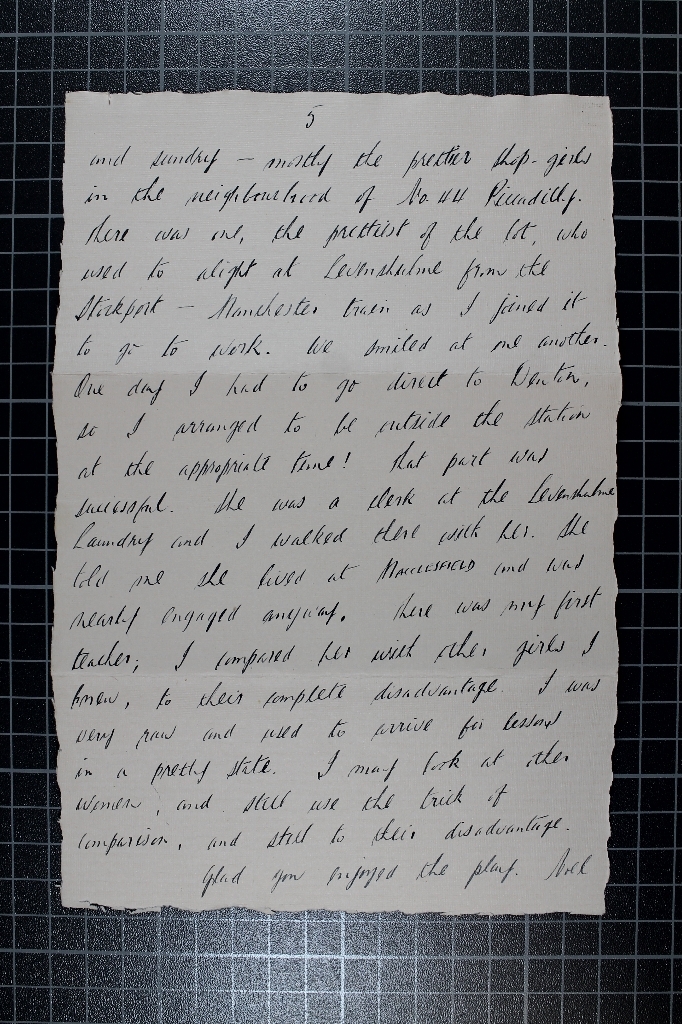 5
and sundry – mostly the prettier shop-girls
in the neighbourhood of No. 44 Piccadilly.
There was one, the prettiest of the lot, who
used to alight at Levenshulme from the
Stockport – Manchester train as I joined it
to go to work. We smiled at one another.
One day I had to go direct to Denton,
so I arranged to be outside the station
at the appropriate time! That part was
successful. She was a clerk at the Levenshulme
Laundry and I walked there with her. She
told me she lived at MACCLESFIELD and was
nearly engaged anyway. There was my first
teacher; I compared her with other girls I
knew, to their complete disadvantage. I was
very raw and used to arrive for lessons
in a pretty state. I may look at other
women, and still use the trick of
comparison, and still to their disadvantage.
Glad you enjoyed the play. Noel